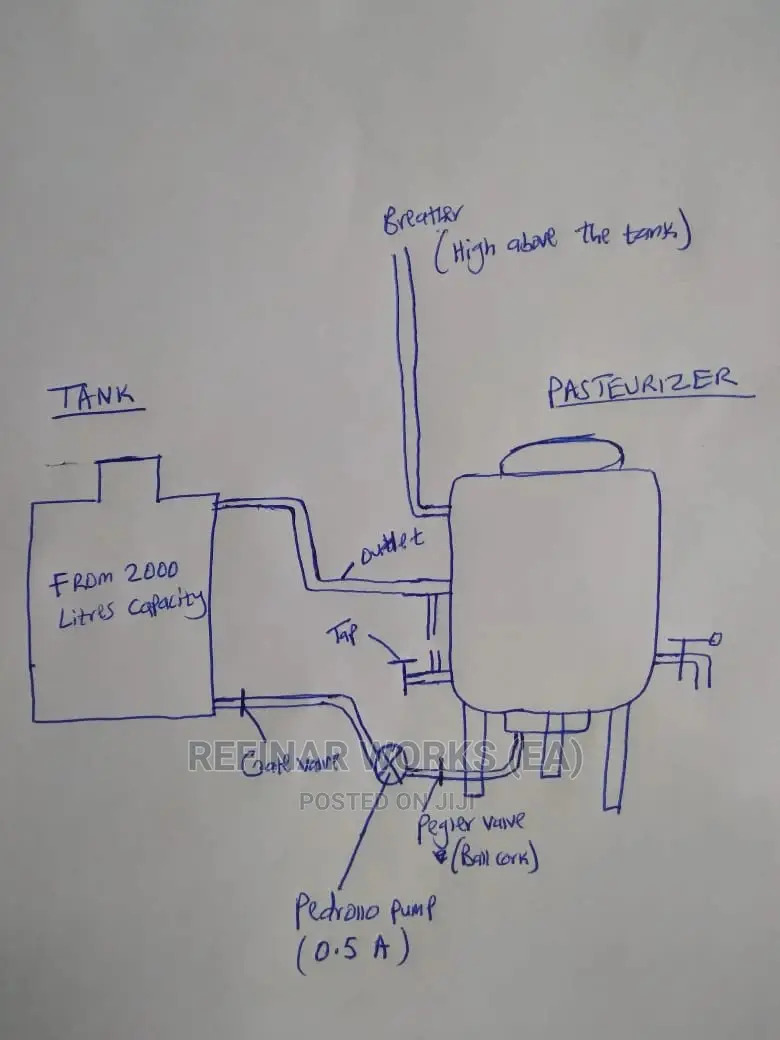 Breather
(High above the tank)
PASTEURIZER
TANK
FROM 2000
Litres capacity
outlet
Tap
Gate valve
REFINAR WORKS (EA)
POSTED ON JIJI
Pegler valve
(Ball cork)
Pedrollo pump
(0.5 A)